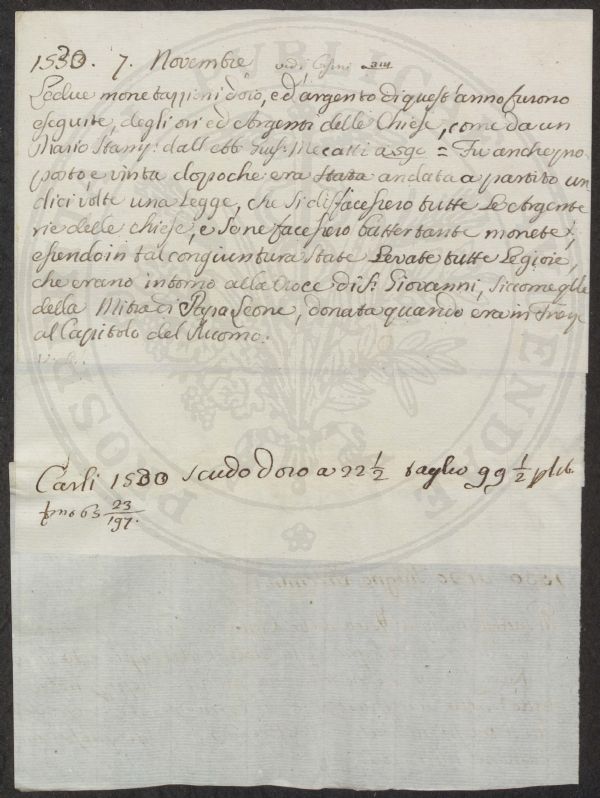 1530. 7. Novembre vedi
Le due monete pieni d'oro, ed argento di quest'anno furono
eseguite, degli ori ed Argenti delle Chiese, come da un
Diario Stamp: dall' Abb: Mecatti a = Fu anche pro
posto, e vinta dopoche era stata andata a partito un
dici volte una Legge, che si disfacessero tutte Le Argente
rie delle chiese, e se ne facessero batter tante monete;
essendo in tal congiuntura state Levate tutte Le gioie,
che erano intorno alla Croce di S. Giovanni, siccome
della Mitra di Papa Leone, donata quando era in
al Capitolo del Duomo.
Carli 1530 scudo d'oro a 22 1/2 taglio 99 1/2
63 23/197.
PUBLICAE
PROSPER